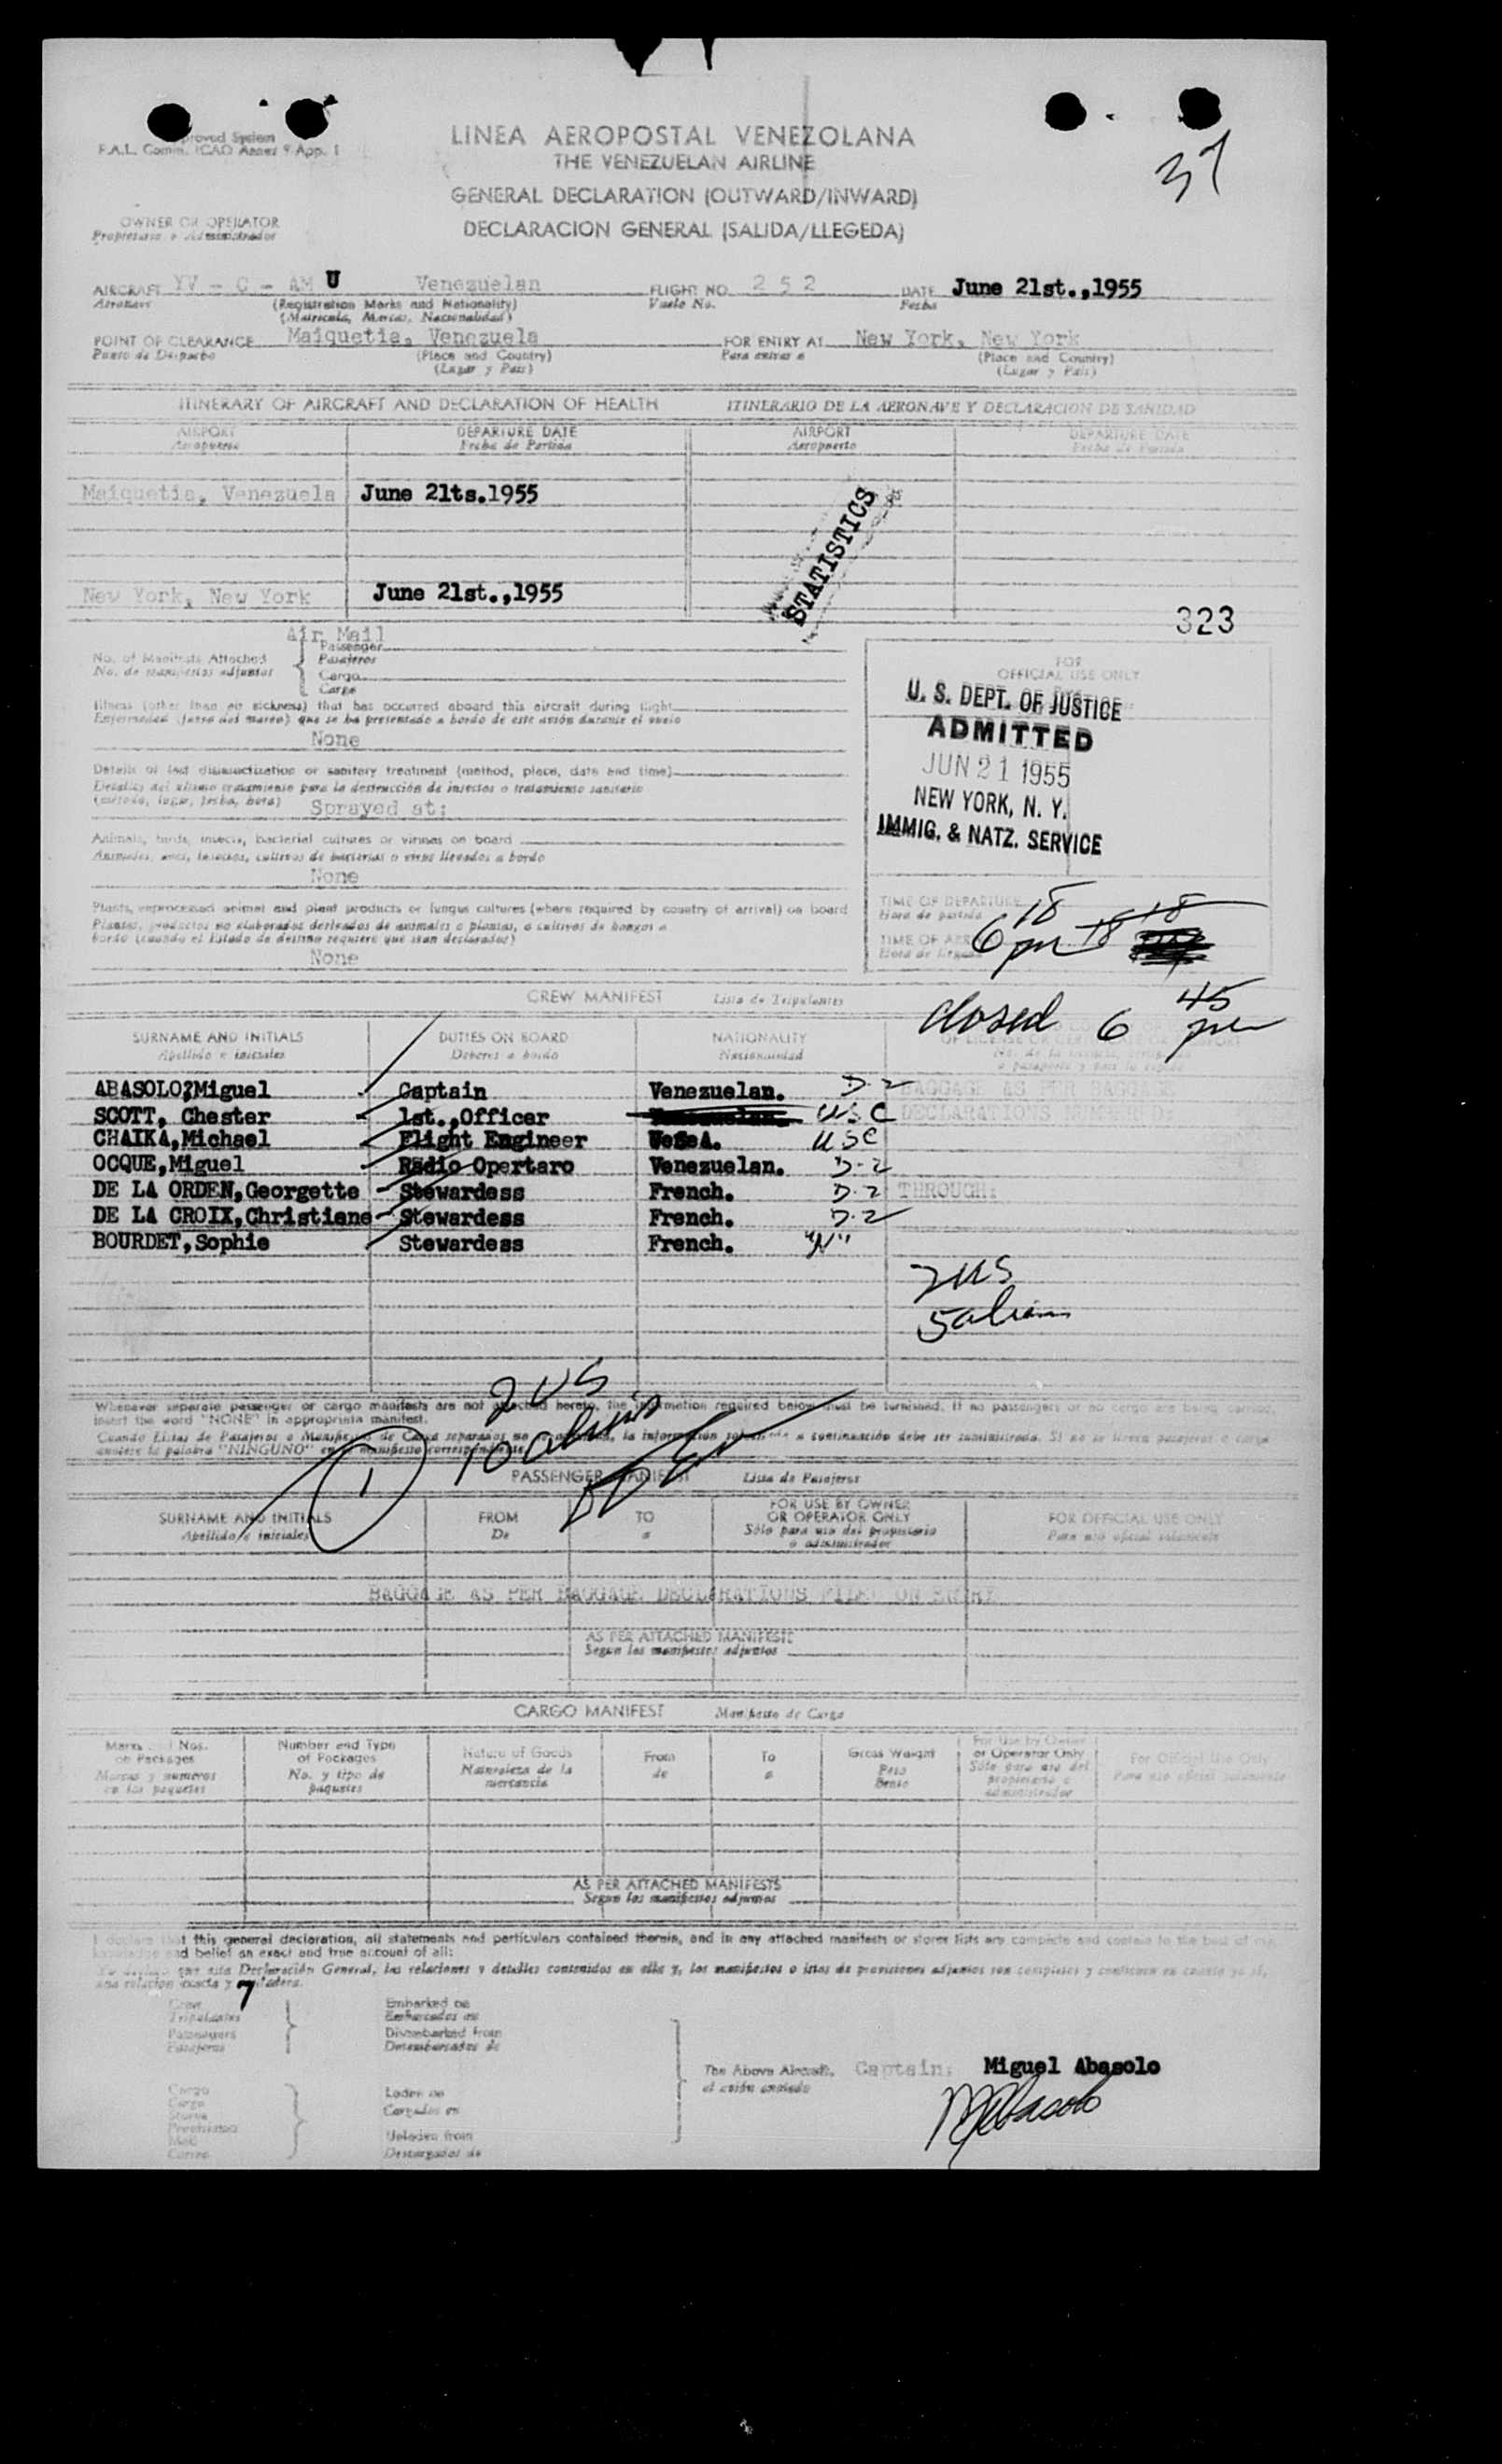 37
Approved System
F.A.L. Comm. ICAO Annex 9 App. 1
LINEA AEROPOSTAL VENEZOLANA
THE VENEZUELAN AIRLINE
GENERAL DECLARATION (OUTWARD/INWARD)
DECLARACION GENERAL (SALIDA/LLEGEDA)
OWNER OR OPERATOR
Propietario o Administrador
AIRCRAFT YV - C - AM U Venezuelan FLIGHT NO. 252 DATE June 21st.,1955
Aeronave (Registration Marks and Nationality) Vuelo No. Fecha
(Matricula, Marcas, Nacionalidad)
POINT OF CLEARANCE Maiquetia, Venezuela FOR ENTRY AT New York, New York
Punto de Despacho (Place and Country) Para entrar a (Place and Country)
(Lugar y Pais) (Lugar y Pais)
ITINERARY OF AIRCRAFT AND DECLARATION OF HEALTH ITINERARIO DE LA AERONAVE Y DECLARACION DE SANIDAD
AIRPORT DEPARTURE DATE AIRPORT DEPARTURE DATE
Aeropuerto Fecha de Partida Aeropuerto Fecha de Partida
Maiquetia, Venezuela June 21ts.1955
STATISTICS
New York, New York June 21st.,1955
323
Air Mail
No. of Manifests Attached Passenger
No. de manifiestos adjuntos Pasajeros
Cargo
Carga
Illness (other than air sickness) that has occurred aboard this aircraft during flight
Enfermedad (fuera del mareo) que se ha presentado a bordo de este avión durante el vuelo
None
Details of last disinsectization or sanitary treatment (method, place, date and time)
Detalles del ultimo tratamiento para la destrucción de insectos o tratamiento sanitario
(método, lugar, fecha, hora) Sprayed at:
Animals, birds, insects, bacterial cultures or viruses on board
Animales, aves, insectos, cultivos de bacterias o virus llevados a bordo
None
Plants, unprocessed animal and plant products or fungus cultures (where required by country of arrival) on board
Plantas, productos no elaborados derivados de animales o plantas, o cultivos de hongos a
bordo (cuando el Estado de destino requiere que sean declarados)
None
FOR
OFFICIAL USE ONLY
U. S. DEPT. OF JUSTICE
ADMITTED
JUN 21 1955
NEW YORK, N. Y.
IMMIG. & NATZ. SERVICE
TIME OF DEPARTURE
Hora de partida
TIME OF
Hora de
6 18 pm
closed 6 45 pm
CREW MANIFEST Lista de Tripulantes
SURNAME AND INITIALS DUTIES ON BOARD NATIONALITY
Apellido e iniciales Deberes a bordo Nacionalidad
ABASOLO?Miguel Captain Venezuelan. D-2 BAGGAGE AS PER BAGGAGE
SCOTT, Chester 1st.,Officer USC DECLARATIONS
CHAIKA,Michael Flight Engineer USC
OCQUE,Miguel Radio Opertaro Venezuelan. D-2
DE LA ORDEN,Georgette Stewardess French. D-2 THROUGH:
DE LA CROIX,Christiane Stewardess French. D-2
BOURDET,Sophie Stewardess French. "N"
2 US
5 alien
2 US
10 aliens
1
Whenever separate passenger or cargo manifests are not attached hereto, the information required below must be furnished. If no passengers or no cargo are being carried,
insert the word "NONE" in appropriate manifest.
PASSENGER MANIFEST Lista de Pasajeros
SURNAME AND INITIALS FROM TO FOR USE BY OWNER OR OPERATOR ONLY FOR OFFICIAL USE ONLY
Apellido e iniciales De a Sólo para uso del propietario o administrador Para uso oficial solamente
BAGGAGE AS PER BAGGAGE DECLARATIONS FILED ON ENTRY
AS PER ATTACHED MANIFESTS
Segun los manifiestos adjuntos
CARGO MANIFEST Manifiesto de Carga
Marks and Nos. on Packages Number and Type of Packages Nature of Goods From To Gross Weight For Use by Owner or Operator Only For Official Use Only
Marcas y numeros en los paquetes No. y tipo de paquetes Naturaleza de la mercancia de a Peso Bruto Sólo para uso del propietario o administrador Para uso oficial solamente
AS PER ATTACHED MANIFESTS
Segun los manifiestos adjuntos
I declare that this general declaration, all statements and particulars contained therein, and in any attached manifests or stores lists are complete and contain to the best of my
knowledge and belief an exact and true account of all:
7
Crew Embarked on
Tripulantes Embarcados en
Passengers Disembarked from
Pasajeros Desembarcados de
The Above Aircraft. Captain: Miguel Abasolo
el avión
MAbasolo
Cargo Laden on
Carga Cargados en
Stores
Mail Unladen from
Correo Descargados de